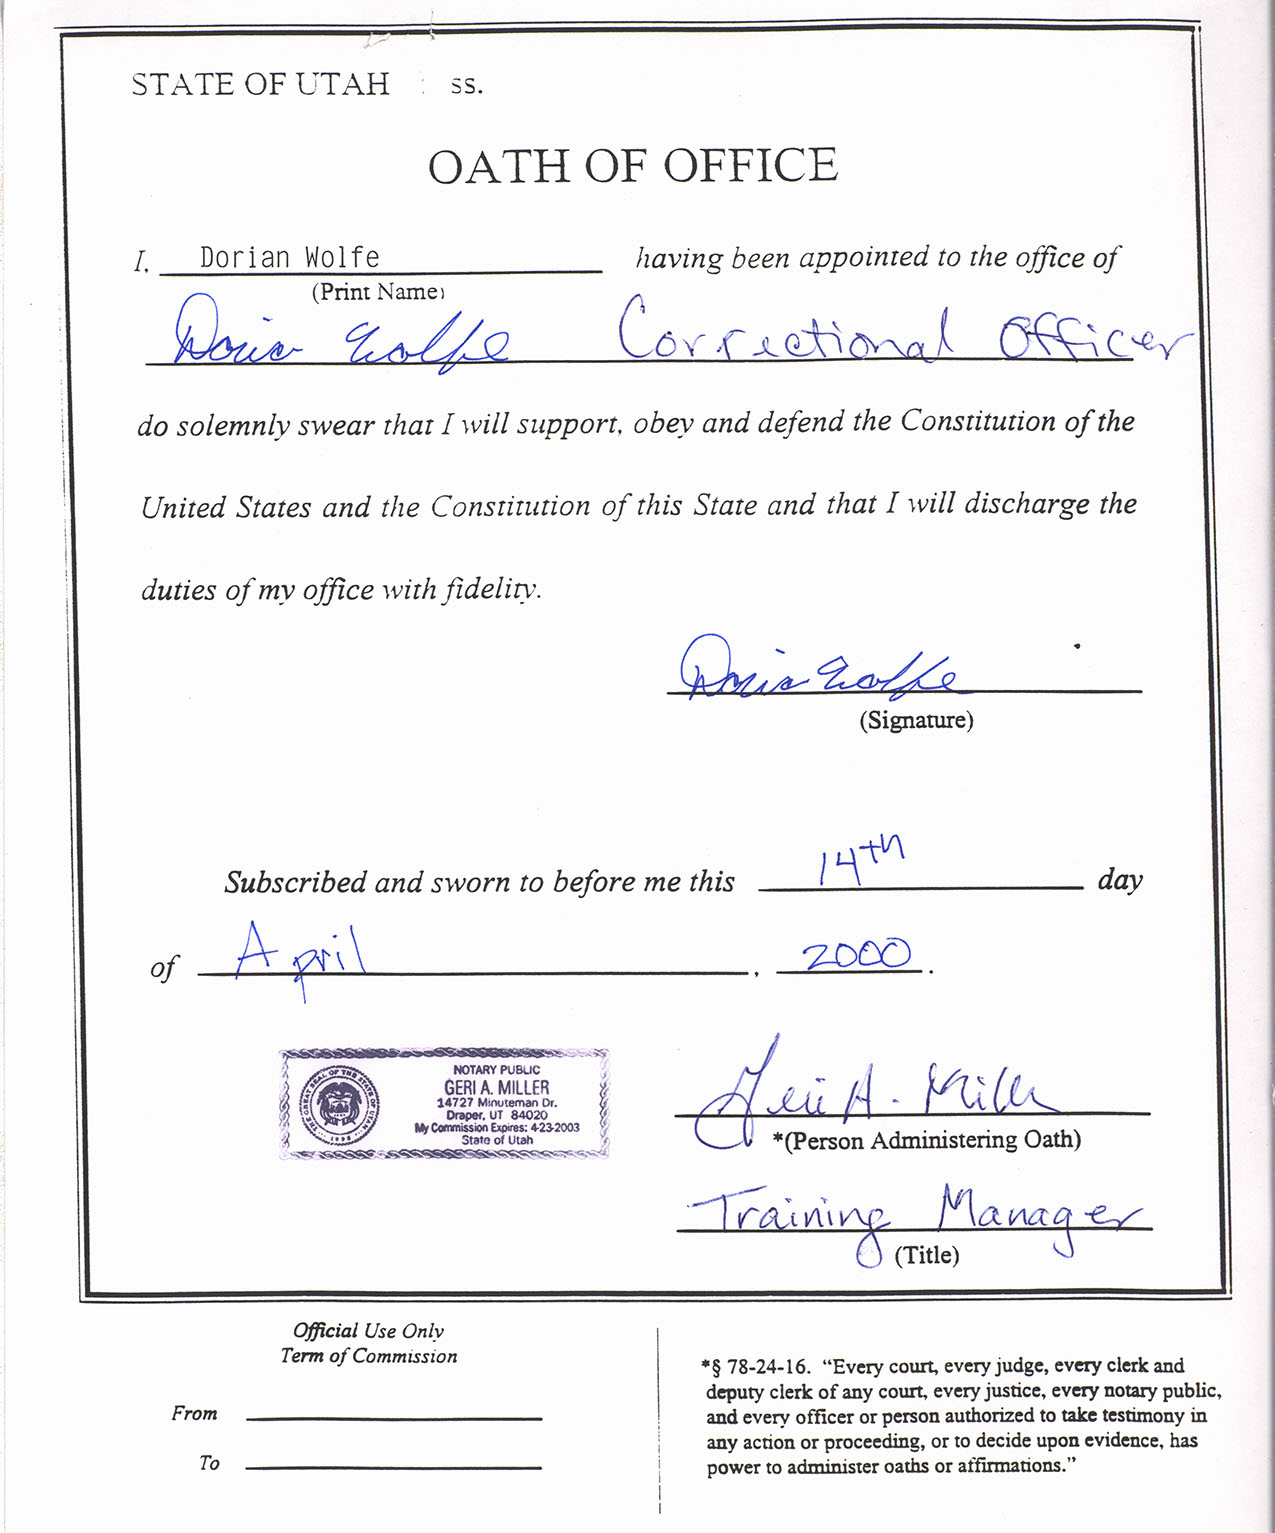 STATE OF UTAH : ss.
OATH OF OFFICE
I, Dorian Wolfe having been appointed to the office of
(Print Name)
Dorian Wolfe Correctional Officer
do solemnly swear that I will support, obey and defend the Constitution of the
United States and the Constitution of this State and that I will discharge the
duties of my office with fidelity.
Dorian Wolfe
(Signature)
Subscribed and sworn to before me this 14th day
of April, 2000.
NOTARY PUBLIC
GERI A. MILLER
14727 Minuteman Dr.
Draper, UT 84020
My Commission Expires: 4-23-2003
State of Utah
THE GREAT SEAL OF THE STATE OF UTAH
1896
Geri A. Miller
*(Person Administering Oath)
Training Manager
(Title)
Official Use Only
Term of Commission
From
To
*§ 78-24-16. “Every court, every judge, every clerk and
deputy clerk of any court, every justice, every notary public,
and every officer or person authorized to take testimony in
any action or proceeding, or to decide upon evidence, has
power to administer oaths or affirmations.”